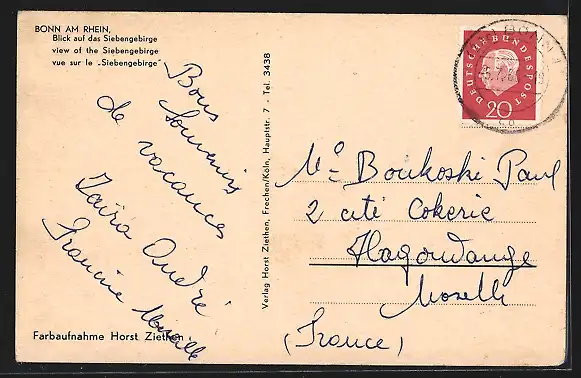 BONN AM RHEIN,
Blick auf das Siebengebirge
view of the Siebengebirge
vue sur le „Siebengebirge“
Bons
Souvenirs
de vacances
Zaïra André
Francine
Farbaufnahme Horst Ziethen
Verlag Horst Ziethen, Frechen/Köln, Hauptstr. 7 · Tel. 3438
BONN 1
DEUTSCHE BUNDESPOST
20
Mr Boukoski Paul
2 cité Cokerie
Hagondange
Moselle
(France)